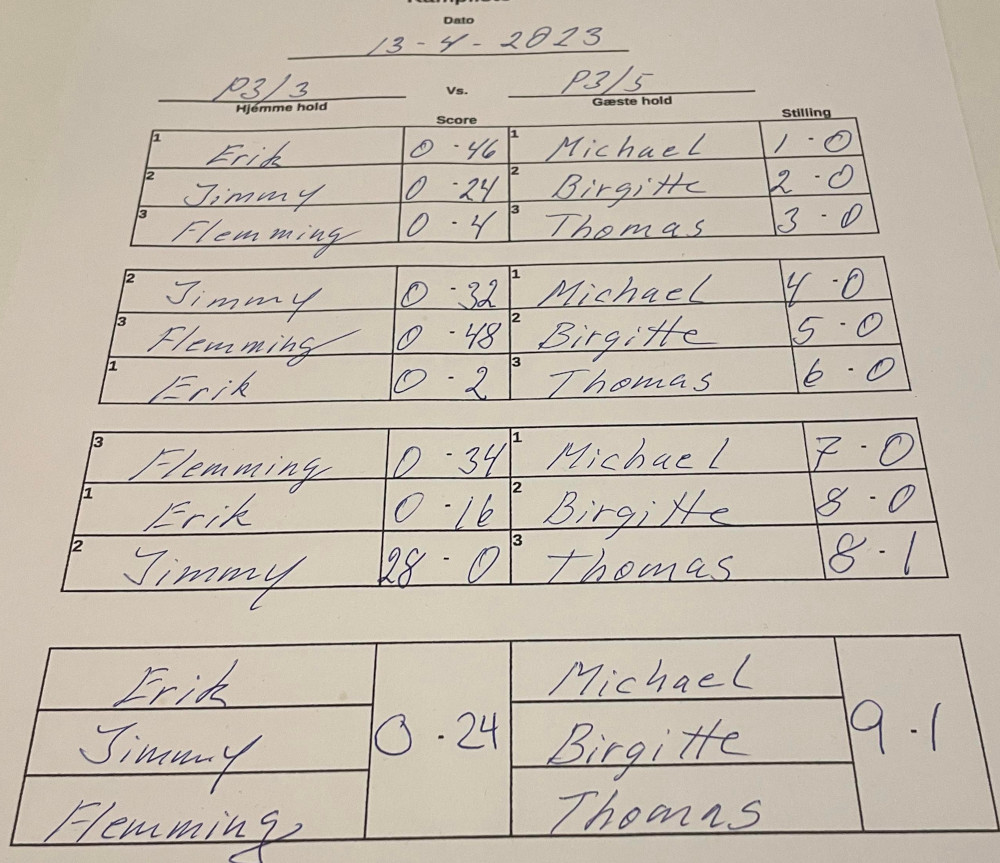 Dato
13-4-2023
P3/3 Vs. P3/5
Hjemme hold Gæste hold
Score Stilling
1 Erik 0-46 1 Michael 1-0
2 Jimmy 0-24 2 Birgitte 2-0
3 Flemming 0-4 3 Thomas 3-0
2 Jimmy 0-32 1 Michael 4-0
3 Flemming 0-48 2 Birgitte 5-0
1 Erik 0-2 3 Thomas 6-0
3 Flemming 0-34 1 Michael 7-0
1 Erik 0-16 2 Birgitte 8-0
2 Jimmy 28-0 3 Thomas 8-1
Erik Michael
Jimmy 0-24 Birgitte 9-1
Flemming Thomas